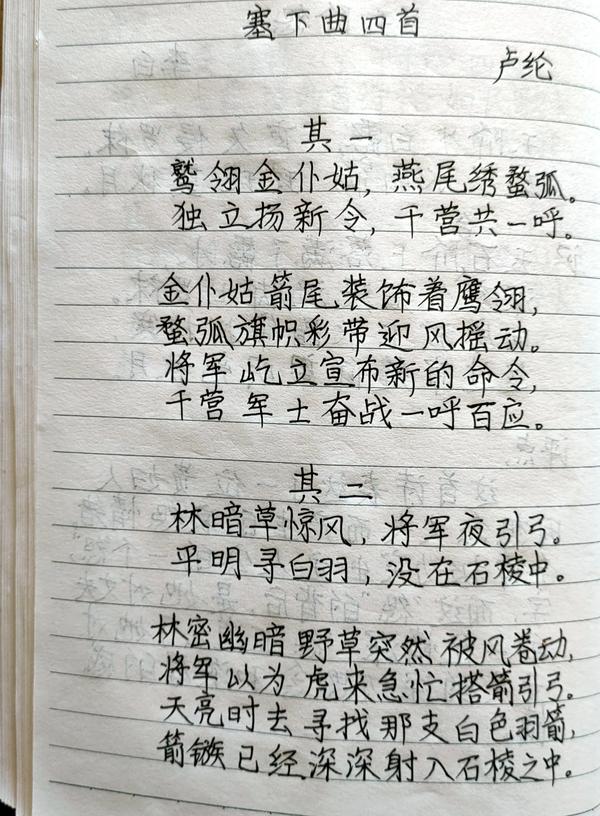 塞下曲四首
卢纶
其一
鹫翎金仆姑，燕尾绣蝥弧。
独立扬新令，千营共一呼。
金仆姑箭尾装饰着鹰翎，
蝥弧旗帜彩带迎风摇动。
将军屹立宣布新的命令，
千营军士奋战一呼百应。
其二
林暗草惊风，将军夜引弓。
平明寻白羽，没在石棱中。
林密幽暗野草突然被风卷动，
将军以为虎来急忙搭箭引弓。
天亮时去寻找那支白色羽箭，
箭镞已经深深射入石棱之中。